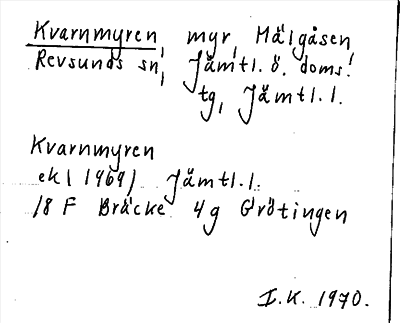 Kvarnmyren, myr, Mälgåsen,
Revsunds sn, Jämtl. ö. doms.
tg, Jämtl. l.
Kvarnmyren
ek (1969) Jämtl. l.
18 F Bräcke 4g Grötingen
I.K. 1970.